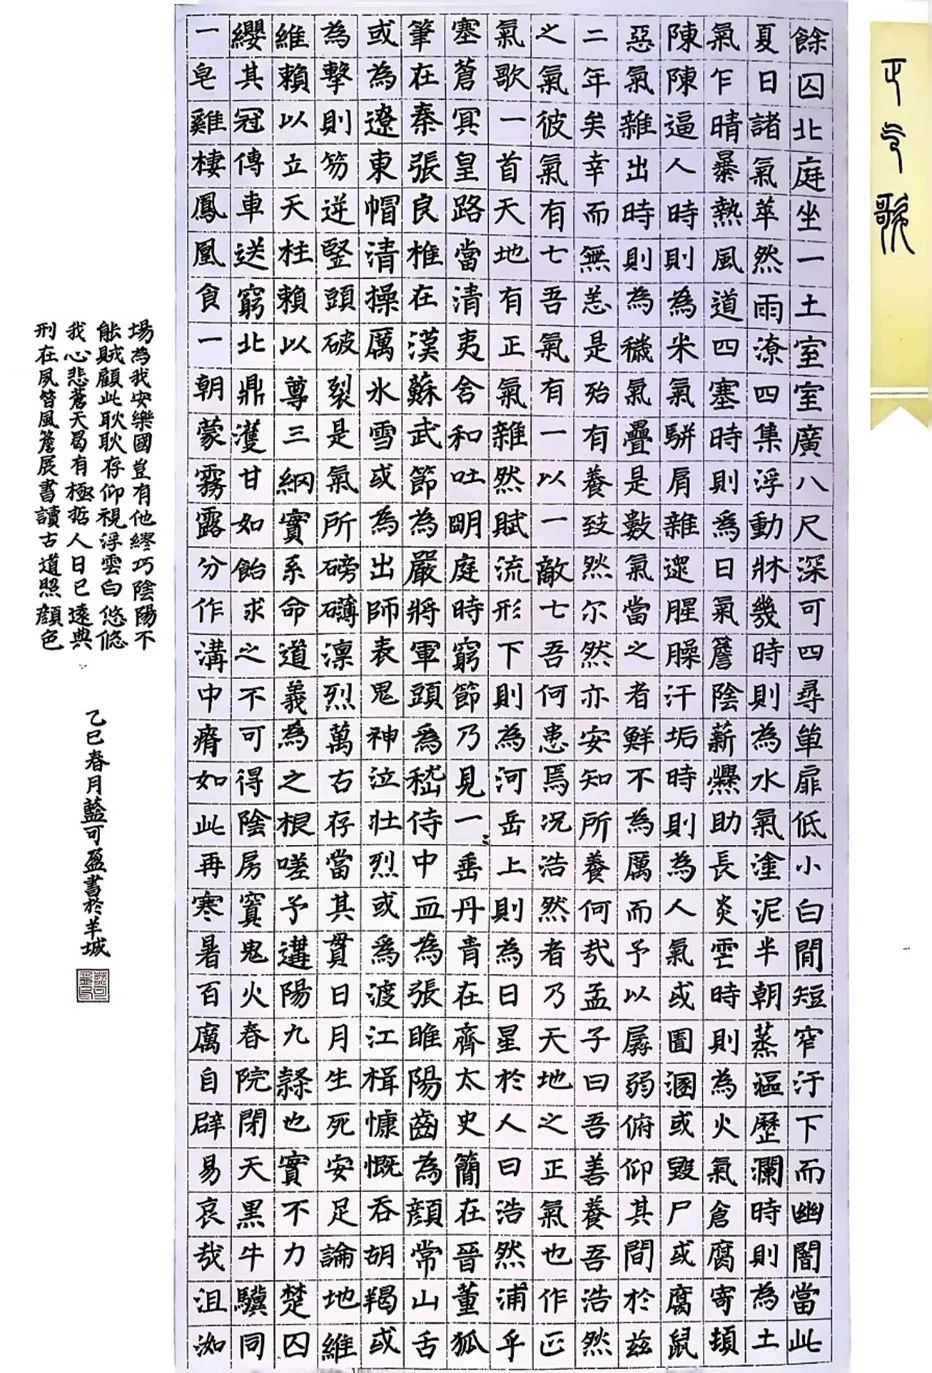 正气歌
餘囚北庭坐一土室室廣八尺深可四尋單扉低小白間短窄汙下而幽闇當此
夏日諸氣萃然雨潦四集浮動牀幾時則為水氣塗泥半朝蒸漚歷瀾時則為土
氣乍晴暴熱風道四塞時則為日氣簷陰薪爨助長炎虐時則為火氣倉腐寄頓
陳陳逼人時則為米氣駢肩雜遝腥臊汗垢時則為人氣或圊溷或毀尸或腐鼠
惡氣雜出時則為穢氣疊是數氣當之者鮮不為厲而予以孱弱俯仰其間於茲
二年矣幸而無恙是殆有養致然尔然亦安知所養何哉孟子曰吾善養吾浩然
之氣彼氣有七吾氣有一以一敵七吾何患焉況浩然者乃天地之正氣也作正
氣歌一首天地有正氣雜然賦流形下則為河岳上則為日星於人曰浩然浦乎
塞蒼冥皇路當清夷含和吐明庭時窮節乃見一垂丹青在齊太史簡在晉董狐
筆在秦張良椎在漢蘇武節為嚴將軍頭為嵇侍中血為張睢陽齒為顏常山舌
或為遼東帽清操厲冰雪或為出師表鬼神泣壯烈或為渡江楫慷慨吞胡羯或
為擊則笏逆豎頭破裂是氣所磅礴凜烈萬古存當其貫日月生死安足論地維
維賴以立天柱賴以尊三綱實系命道義為之根嗟予遘陽九隸也實不力楚囚
纓其冠傳車送窮北鼎鑊甘如飴求之不可得陰房鬼火春院閉天黑牛驥同
一皂雞棲鳳凰食一朝蒙霧露分作溝中瘠如此再寒暑百厲自辟易哀哉沮洳
場為我安樂國豈有他繆巧陰陽不
能賊顧此耿耿存仰視浮雲白悠悠
我心悲蒼天曷有極哲人日已遠典
刑在夙昔風簷展書讀古道照顏色
乙巳春月藍可盈書於羊城